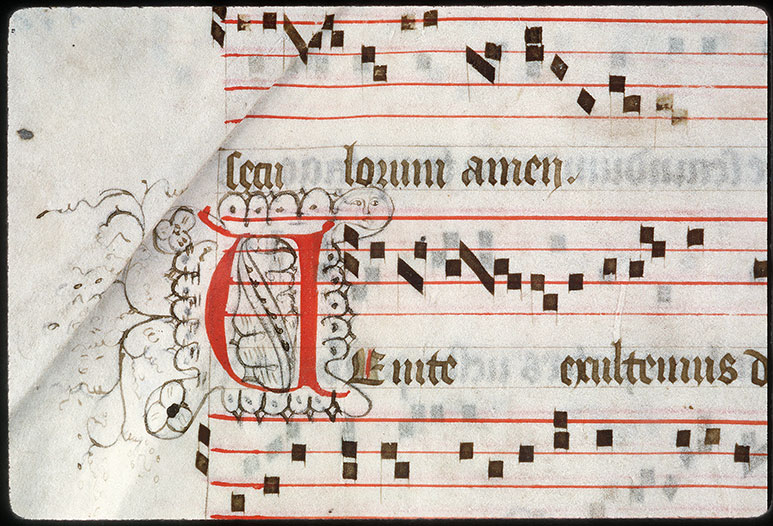 secu lorum amen.
VEnite exultemus d